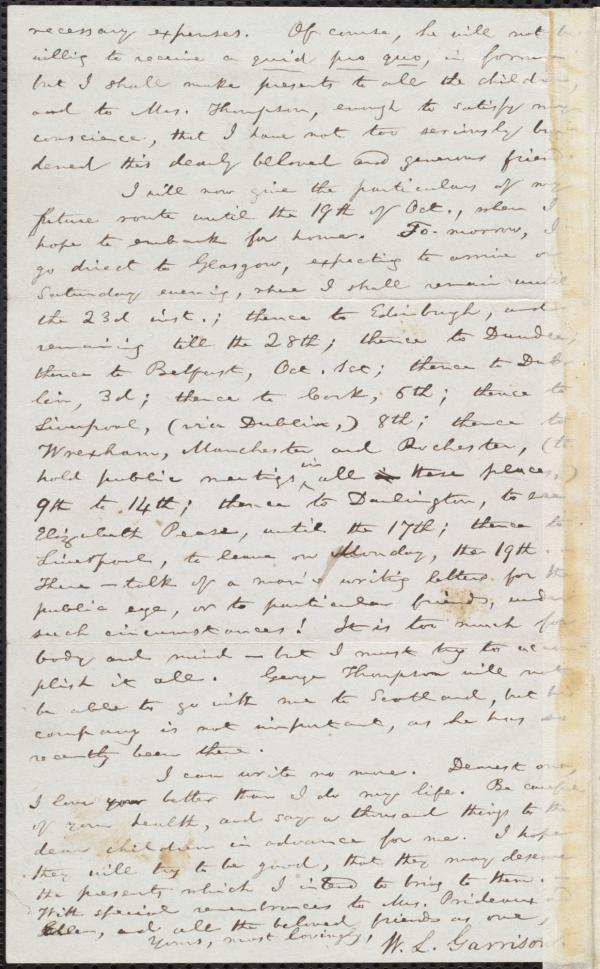 necessary expenses. Of course, he will not be
willig to receive a quid pro quo, in form
but I shall make presents to all the children,
and to Mrs. Thompson, enough to satisfy my
conscience, that I have not too seriously bur-
dened this dearly beloved and generous friend.
I will now give the particulars of my
future route until the 19th of Oct., when I
hope to embark for home. To-morrow, I
go direct to Glasgow, expecting to arrive on
Saturday evening, where I shall remain until
the 23d inst.; thence to Edinburgh, and
remaining till the 28th; thence to Dundee;
thence to Belfast, Oct. 1st; thence to Dub-
lin, 3d; thence to Cork, 6th; thence to
Liverpool, (via Dublin,) 8th; thence to
Wrexham, Manchester and Rochester, (to
hold public meetings in all these places,)
9th to 14th; thence to Darlington, to see
Elizabeth Pease, until the 17th; thence to
Liverpool, to leave on Monday, the 19th.
There — talk of a man's writig letters for the
public eye, or to particular friends, under
such circumstances! It is too much for
body and mind — but I must try to accom-
plish it all. George Thompson will not
be able to go with me to Scotland, but his
company is not important, as he has so
recently been there.
I can write no more. Dearest one,
I love you better than I do my life. Be careful
of your health, and say a thousand things to the
dear children in advance for me. I hope
they will try to be good, that they may deserve
the presents which I intend to bring to them.
With special remembrances to Mrs. Prideaux
and all the beloved friends as one,
Yours, most lovingly, W. L. Garrison.